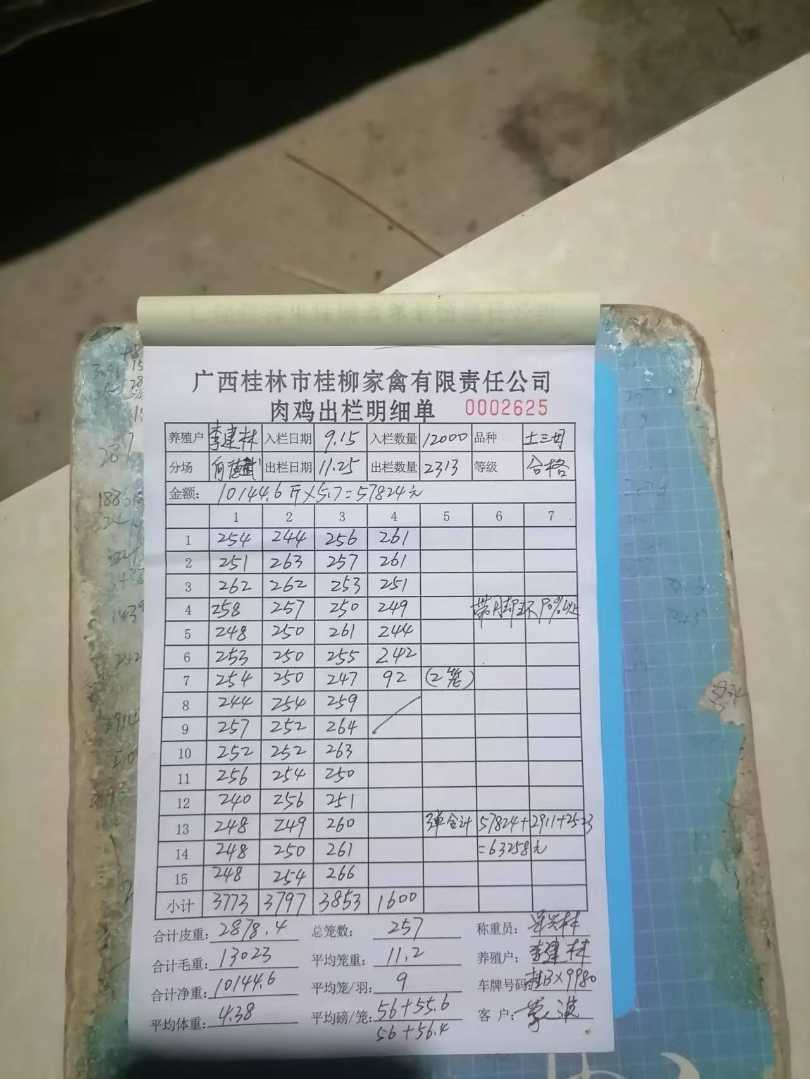 广西桂林市桂柳家禽有限责任公司
肉鸡出栏明细单 0002625
养殖户 李建林 入栏日期 9.15 入栏数量 12000 品种 土三母
分场 出栏日期 11.25 出栏数量 2313 等级 合格
金额: 10144.6斤×5.7=57824元
1 2 3 4 5 6 7
1 254 244 256 261
2 251 263 257 261
3 262 262 253 251
4 258 257 250 249 带脚环90%以上
5 248 250 261 244
6 253 250 255 242
7 254 250 247 92 (2笼)
8 244 254 259
9 257 252 264
10 252 252 263
11 256 254 250
12 240 256 251
13 248 249 260 3单合计 57824+2911+2523
14 248 250 261 =63258元
15 248 254 266
小计 3773 3797 3853 1600
合计皮重: 2878.4 总笼数: 257 称重员:
合计毛重: 13023 平均笼重: 11.2 养殖户: 李建林
合计净重: 10144.6 平均笼/羽: 9 车牌号码: 桂B×9980
平均体重: 4.38 平均磅/笼: 56+55.6 客户:
56+56.4